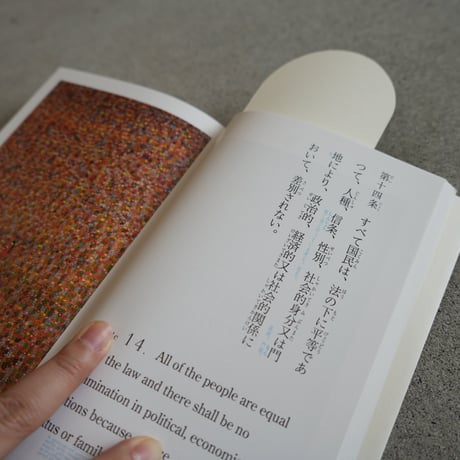 第十四条 すべて国民は、法の下に平等であ
つて、人種、信条、性別、社会的身分又は門
地により、政治的、経済的又は社会的関係に
おいて、差別されない。
14. All of the people are equal
the law and there shall be no
in political, economic
because
or